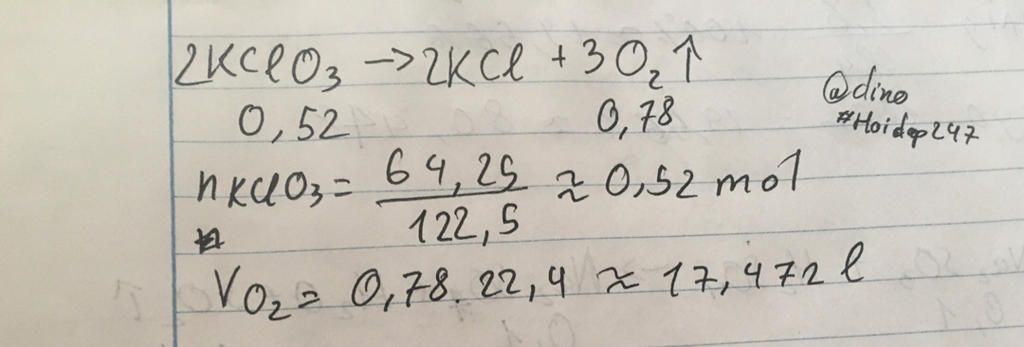 2KClO₃ → 2KCl + 3O₂ ↑
0,52 0,78
@dino
#Hoidap247
nKClO₃ = 64,25 / 122,5 ≈ 0,52 mol
VO₂ = 0,78 . 22,4 ≈ 17,472 l